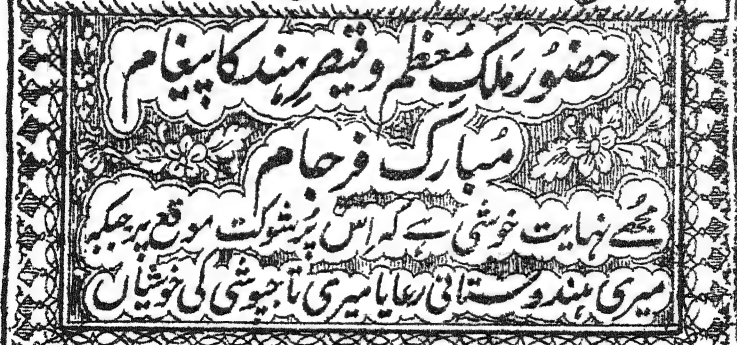 حضُور مَلکِ مُعظم و قیصرِ ہند کا پیغام
مُبارک فرجام
مجُھے نہایت خوشی ہے کہ اِس پُرشوکت موقع پر جبکہ
میری ہندوستانی رعایا میری تاجپوشی کی خوشیاں